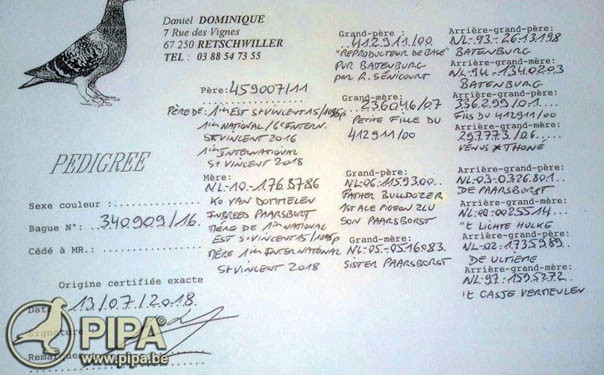 Daniel DOMINIQUE
7 Rue des Vignes
67 250 RETSCHWILLER
TEL : 03 88 54 73 55
PEDIGREE
Sexe couleur :
Bague N° : 340909/16.
Cédé à MR.:
Origine certifiée exacte
Date 13/07/2018.
Signature
Remarque
Père: 459007/11
PÈRE DE: 1er EST St VINCENT 15/
1er NATIONAL / 6e INTERN.
St VINCENT 2016
1er INTERNATIONAL
St VINCENT 2018
Mère:
NL-10-1768786
KO VAN DOMMELEN
INBREED PAARSBORST
MÈRE DE 1er NATIONAL
EST St VINCENT 15/
MÈRE 1er INTERNATIONAL
St VINCENT 2018
Grand-père:
412911/00.
"REPRODUCTEUR DE BASE"
PUR BATENBURG
par R. SÉNICOURT
Grand-mère:
236046/07
PETITE FILLE DU
412911/00
Grand-père:
NL-06-1159300
FATHER BULLDOZER
1st ACE PIGEON ZLU
SON PAARSBORST
Grand-mère:
NL-05-0516083.
SISTER PAARSBORST
Arrière-grand-père:
NL-93-2613198
BATENBURG
Arrière-grand-mère:
NL-94-1340203
BATENBURG
Arrière-grand-père:
336299/01.
FILS DU 412911/00
Arrière-grand-mère:
297773/06.
VENUS x THONE
Arrière-grand-père:
NL-03-0326801
DE PAARSBORST
Arrière-grand-mère:
NL-00-0025514
't LICHTE HULKE
Arrière-grand-père:
NL-02-1735989
DE ULTIEME
Arrière-grand-mère:
NL-97-1595272
't CASJE VERMEULEN
PIPA®
www.pipa.be